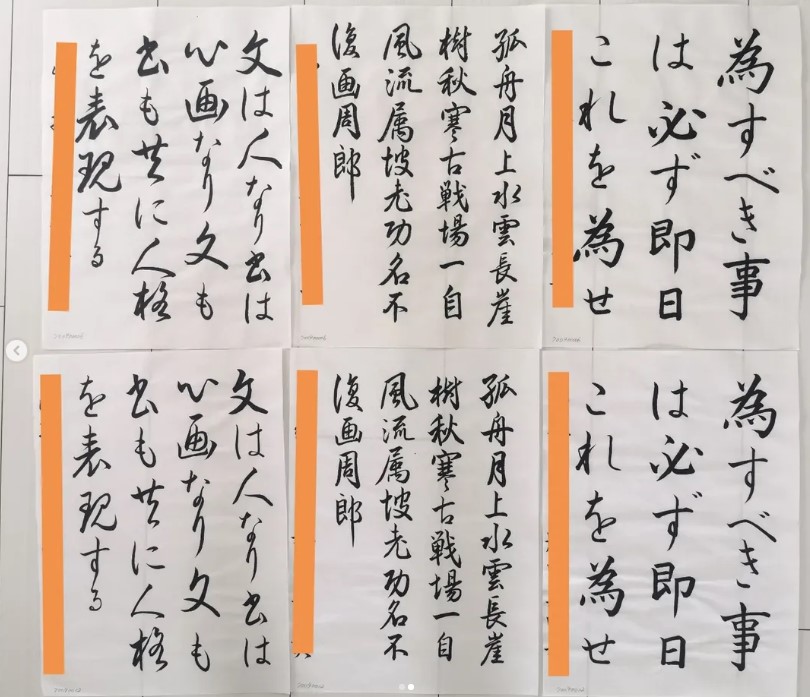 為すべき事
は必ず即日
これを為せ
孤舟月上水雲長崖
樹秋寒古戦場一自
風流属坡老功名不
復画周郎
文は人なり書は
心画なり文も
書も共に人格
を表現する
為すべき事
は必ず即日
これを為せ
孤舟月上水雲長崖
樹秋寒古戦場一自
風流属坡老功名不
復画周郎
文は人なり書は
心画なり文も
書も共に人格
を表現する